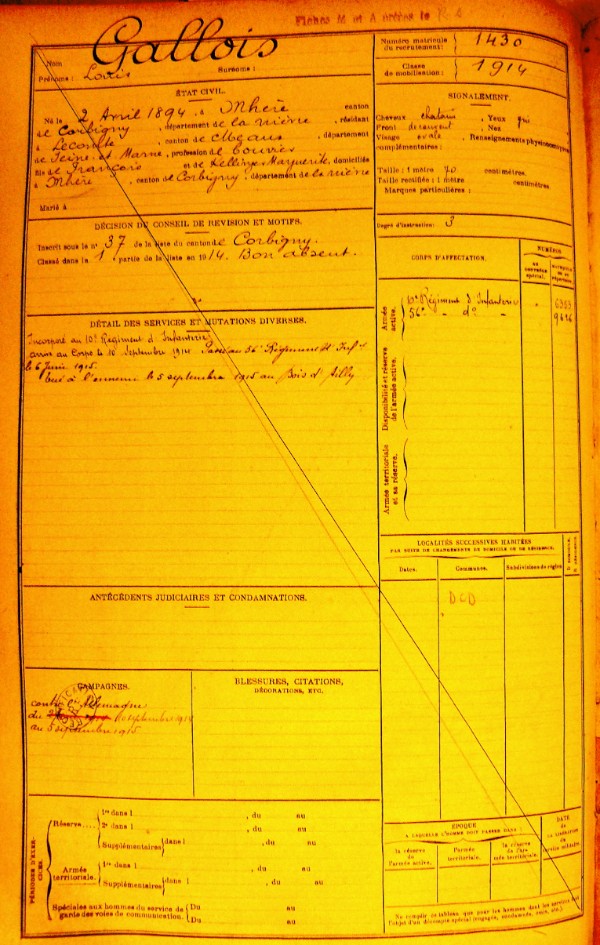 Fiches M et A créées le
Gallois
Nom
Prénoms : Louis Surnoms :
Numéro matricule du recrutement : 1430
Classe de mobilisation : 1914
ÉTAT CIVIL.
Né le 2 Avril 1894, à Mhère canton
de Corbigny, département de la nièvre, résidant
à Lecomte, canton de Meaux, département
de Seine et Marne, profession de bouvier
fils de François et de Marguerite, domiciliés
à Mhère, canton de Corbigny, département de la nièvre
Marié à
SIGNALEMENT.
Cheveux chatains Yeux gris
Front Nez
Visage ovale Renseignements physionomiques
complémentaires :
Taille : 1 mètre 70 centimètres.
Taille rectifiée : 1 mètre centimètres.
Marques particulières :
Degré d'instruction : 3
DÉCISION DU CONSEIL DE REVISION ET MOTIFS.
Inscrit sous le n° 37 de la liste du canton de Corbigny.
Classé dans la 1 partie de la liste en 1914. Bon absent.
DÉTAIL DES SERVICES ET MUTATIONS DIVERSES.
Incorporé au 10e Régiment d'Infanterie
arrivé au Corps le 10 Septembre 1914. Passé au 56e Régiment d'Infie
le 6 Juin 1915.
Tué à l'ennemi le 5 septembre 1915 au Bois d'Ailly.
CORPS D'AFFECTATION.
NUMÉROS
au contrôle spécial.
matricule ou au répertoire.
Armée active.
10e Régiment d'Infanterie 6363
56e - do - 9626
Disponibilité et réserve de l'armée active.
Armée territoriale et sa réserve.
LOCALITÉS SUCCESSIVES HABITÉES
PAR SUITE DE CHANGEMENTS DE DOMICILE OU DE RÉSIDENCE.
Dates. Communes. Subdivisions de région D. domicile. R. résidence.
DCD
ANTÉCÉDENTS JUDICIAIRES ET CONDAMNATIONS.
CAMPAGNES.
contre l'Allemagne
du 10 septembre 1914
au 5 septembre 1915
BLESSURES, CITATIONS,
DÉCORATIONS, ETC.
PÉRIODES D'EXERCICES.
Réserve....
1re dans l , du au
2e dans l , du au
Supplémentaires dans l , du au
Armée territoriale.
1re dans l , du au
Supplémentaires dans l , du au
Spéciales aux hommes du service de
garde des voies de communication.
Du au
Du au
ÉPOQUE
À LAQUELLE L'HOMME DOIT PASSER DANS :
la réserve de l'armée active.
l'armée territoriale.
la réserve de l'armée territoriale.
DATE
DE LA LIBÉRATION
du service militaire
Ne remplir ce tableau que pour les hommes dont les services font
l'objet d'un décompte spécial (engagés, condamnés, omis, etc.)